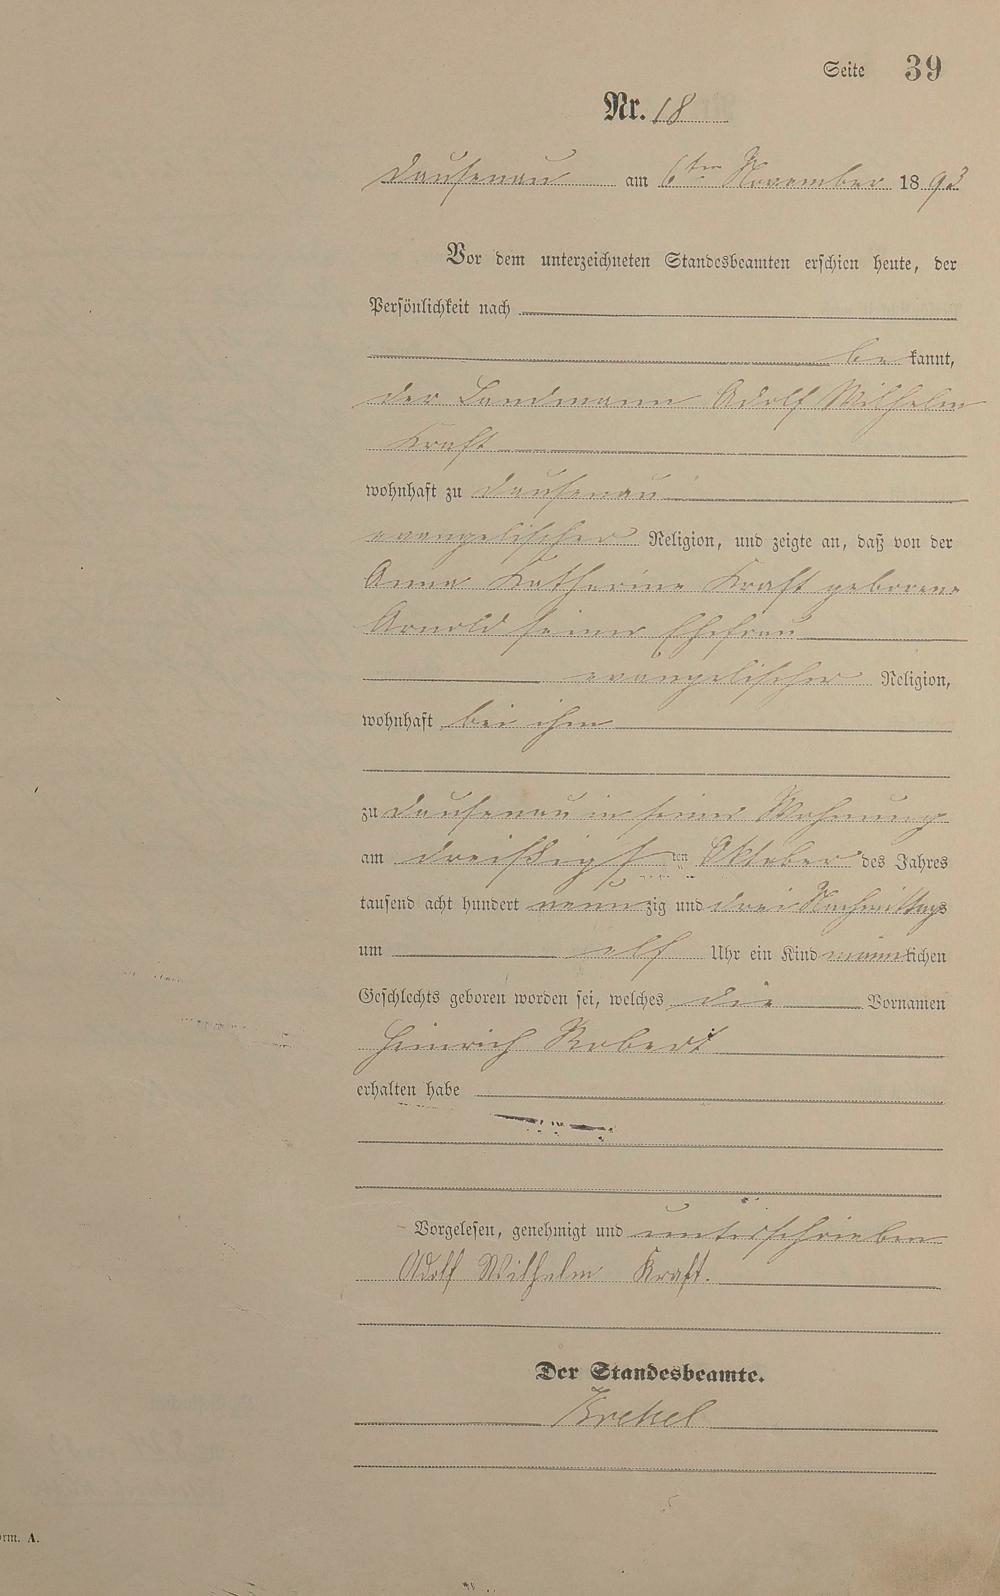 Seite 39
Nr. 18
Dausenau am 6ten November 1893
Vor dem unterzeichneten Standesbeamten erschien heute, der
Persönlichkeit nach
be kannt,
der Landmann Adolf Wilhelm
Kraft
wohnhaft zu Dausenau
evangelischer Religion, und zeigte an, daß von der
Anna Katharina Kraft geborene
Arnold seiner Ehefrau
evangelischer Religion,
wohnhaft bei ihm
zu Dausenau in seiner Wohnung
am dreißigsten Oktober des Jahres
tausend acht hundert neunzig und drei Nachmittags
um elf Uhr ein Kind männlichen
Geschlechts geboren worden sei, welches die Vornamen
Heinrich Robert
erhalten habe
Vorgelesen, genehmigt und unterschrieben
Adolf Wilhelm Kraft.
Der Standesbeamte.
Krekel
orm. A.